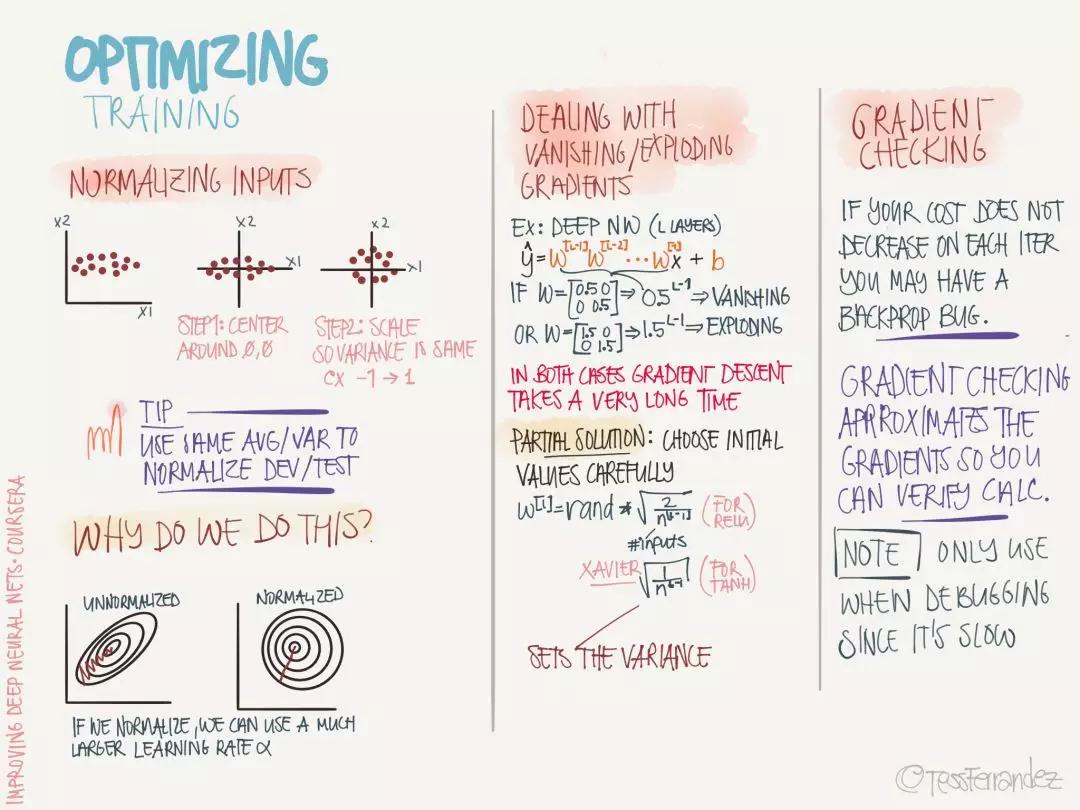 OPTIMIZING
TRAINING
NORMALIZING INPUTS
X2
X1
X2
X1
X2
X1
STEP1: CENTER
AROUND 0,0
STEP2: SCALE
SO VARIANCE IS SAME
EX -1 → 1
TIP
USE SAME AVG/VAR TO
NORMALIZE DEV/TEST
WHY DO WE DO THIS?
UNNORMALIZED
NORMALIZED
IF WE NORMALIZE, WE CAN USE A MUCH
LARGER LEARNING RATE α
DEALING WITH
VANISHING/EXPLODING
GRADIENTS
EX: DEEP NW (L LAYERS)
ŷ = W[L-1] W[L-2] ... W[1] X + b
IF W = [0.5 0 0 0.5] ⇒ 0.5^(L-1) ⇒ VANISHING
OR W = [1.5 0 0 1.5] ⇒ 1.5^(L-1) ⇒ EXPLODING
IN BOTH CASES GRADIENT DESCENT
TAKES A VERY LONG TIME
PARTIAL SOLUTION: CHOOSE INITIAL
VALUES CAREFULLY
W[l] = rand * √(2/n[l-1]) (FOR RELU)
#inputs
XAVIER √(1/n[l-1]) (FOR TANH)
SETS THE VARIANCE
GRADIENT
CHECKING
IF YOUR COST DOES NOT
DECREASE ON EACH ITER
YOU MAY HAVE A
BACKPROP BUG.
GRADIENT CHECKING
APPROXIMATES THE
GRADIENTS SO YOU
CAN VERIFY CALC.
NOTE ONLY USE
WHEN DEBUGGING
SINCE IT'S SLOW
IMPROVING DEEP NEURAL NETS • COURSERA
©TessFerrandez